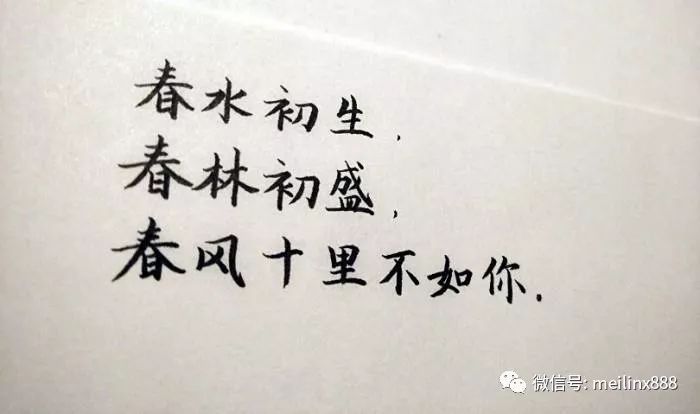 春水初生，
春林初盛，
春风十里不如你．
微信号: meilinx888